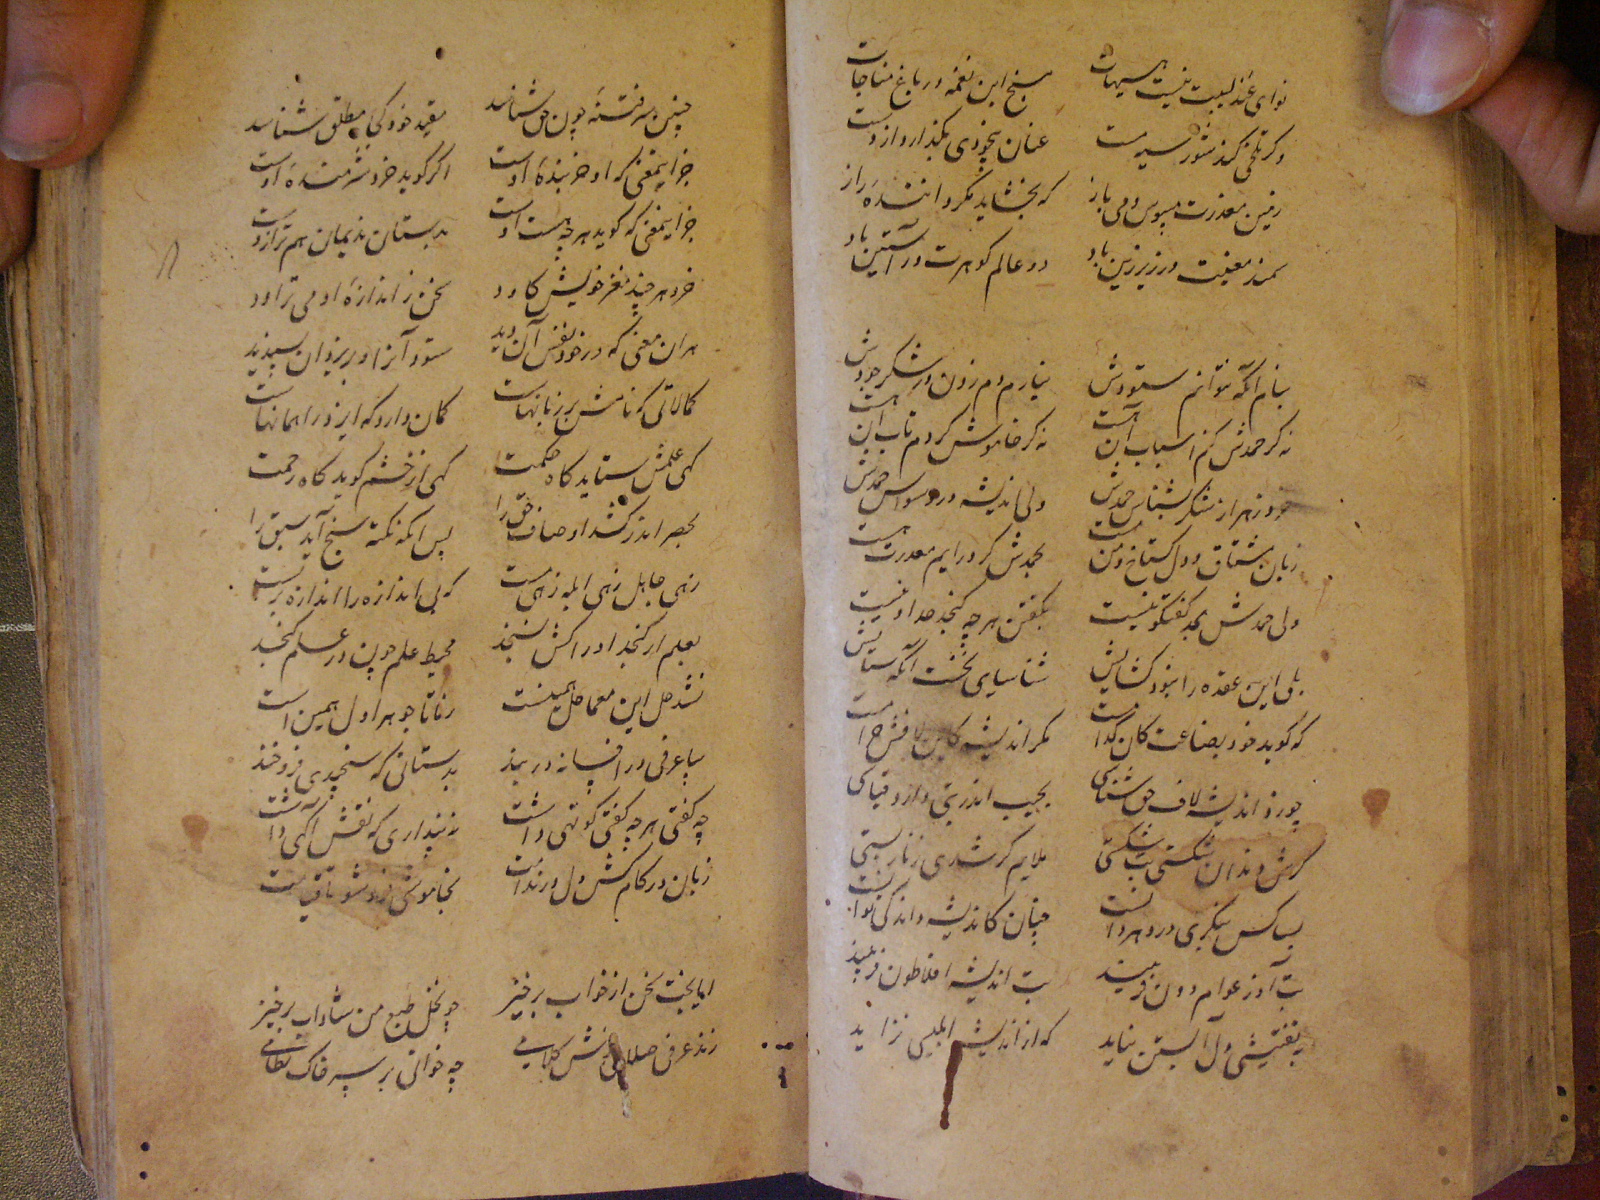 نوای عندلیبت نیست هیهات مسنج این نغمه در باغ مناجات
وگر تلخی کند شور سرمست عنان بیخودی بگذار از دست
زمین معذرت میبوس و می باز که بخشاید مگر داننده راز
سمند معنیت در زیر زین باد دو عالم گوهرت در آستین باد
بنام آنکه نتوانم ستودش نیارم دم زدن در شکر جودش
نه گر حمدش کنم اسباب آن هست نه گر خاموش گردم تاب آن هست
ولی اندیشه در وسواس حمدش
زبان مشتاق و دل گستاخ و من مست بحمدش گر درایم معذرت هست
ولی حمدش بحد گفتگو نیست بگفتن هر چه گنجد حمد او نیست
بلی این عقده را نبود گشایش شناسای نخست آنگه ستایش
که گوید خود بضاعت کان کدامست مگر اندیشه کاین لافش حرامست
چو زد اندیشه لاف حق شناسی بجیب اندر بتی دارد قیاسی
گرش دندان شکستی بت شکستی ملایم گر شدی زنار بستی
بسا کس بنگری در دهر دانست چنان کاندیشه داند کی توانست
بت آذر عوام دون فریبد بت اندیشه افلاطون فریبد
بتفتیشی دل آبستن نماید که از اندیشه ابلیسی نزاید
چنین سر فتنه چون حق شناسد مقید خود کجا مطلق شناسد
جز اینمعنی که او خر بنده اوست اگر گوید خرد شرمنده اوست
جز اینمعنی که گوید هر چه هست اوست بدستان ندیمان هم ترازوست
خرد هر چند مغز خویش کاود سخن ز اندازه او می تراود
هر آن معنی که در خود نغز آن دید ستود آنرا و بر یزدان پسندید
کمالاتی که نامش بر زبانهاست گمان دارد که ایزد را همانهاست
گهی علمش ستاید گاه حکمت گهی از خشم گوید گاه رحمت
بحصر اندر کشد اوصاف حق را پس آنگه نکته سنج آید سبق را
زهی جاهل زهی ابله زهی مست که بی اندازه را اندازه بر بست
بعلم ار گنجد ادراکش نسنجد محیط علم چون در علم گنجد
نشد حل این معما حل همینست ز ما تا جوهر اول همین است
بیا عرفی در افسانه در بند بدستانی که سنجیدی فرو خند
چه گفتی هر چه گفتی کوتهی داشت نه پنداری که نقش آگهی داشت
زبان در کام کش دل درند است
الا یا بخت سخن از خواب برخیز چو نخل طبع من شاداب برخیز
زند عرفی صلای خوش کلامی چه خوانی بر سر خاک نظامی